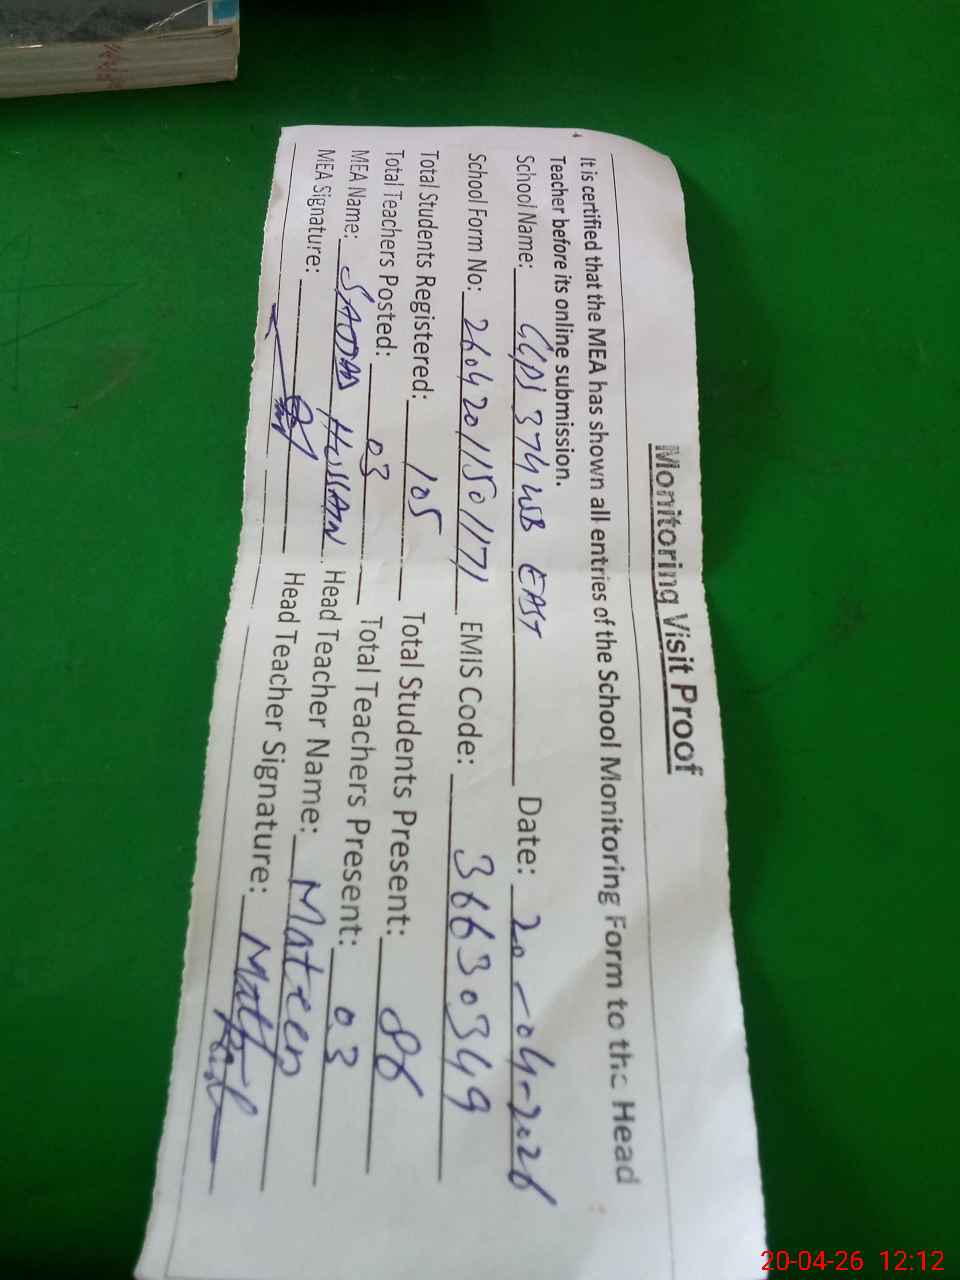 Monitoring Visit Proof
It is certified that the MEA has shown all entries of the School Monitoring Form to the Head
Teacher before its online submission.
School Name: GPS 374 WB EAST Date: 20-04-2026
School Form No: 260420115011171 EMIS Code: 36630349
Total Students Registered: 105 Total Students Present: 86
Total Teachers Posted: 03 Total Teachers Present: 03
MEA Name: SADDAM HUSSAIN Head Teacher Name: Mateen
MEA Signature: Head Teacher Signature:
20-04-26 12:12